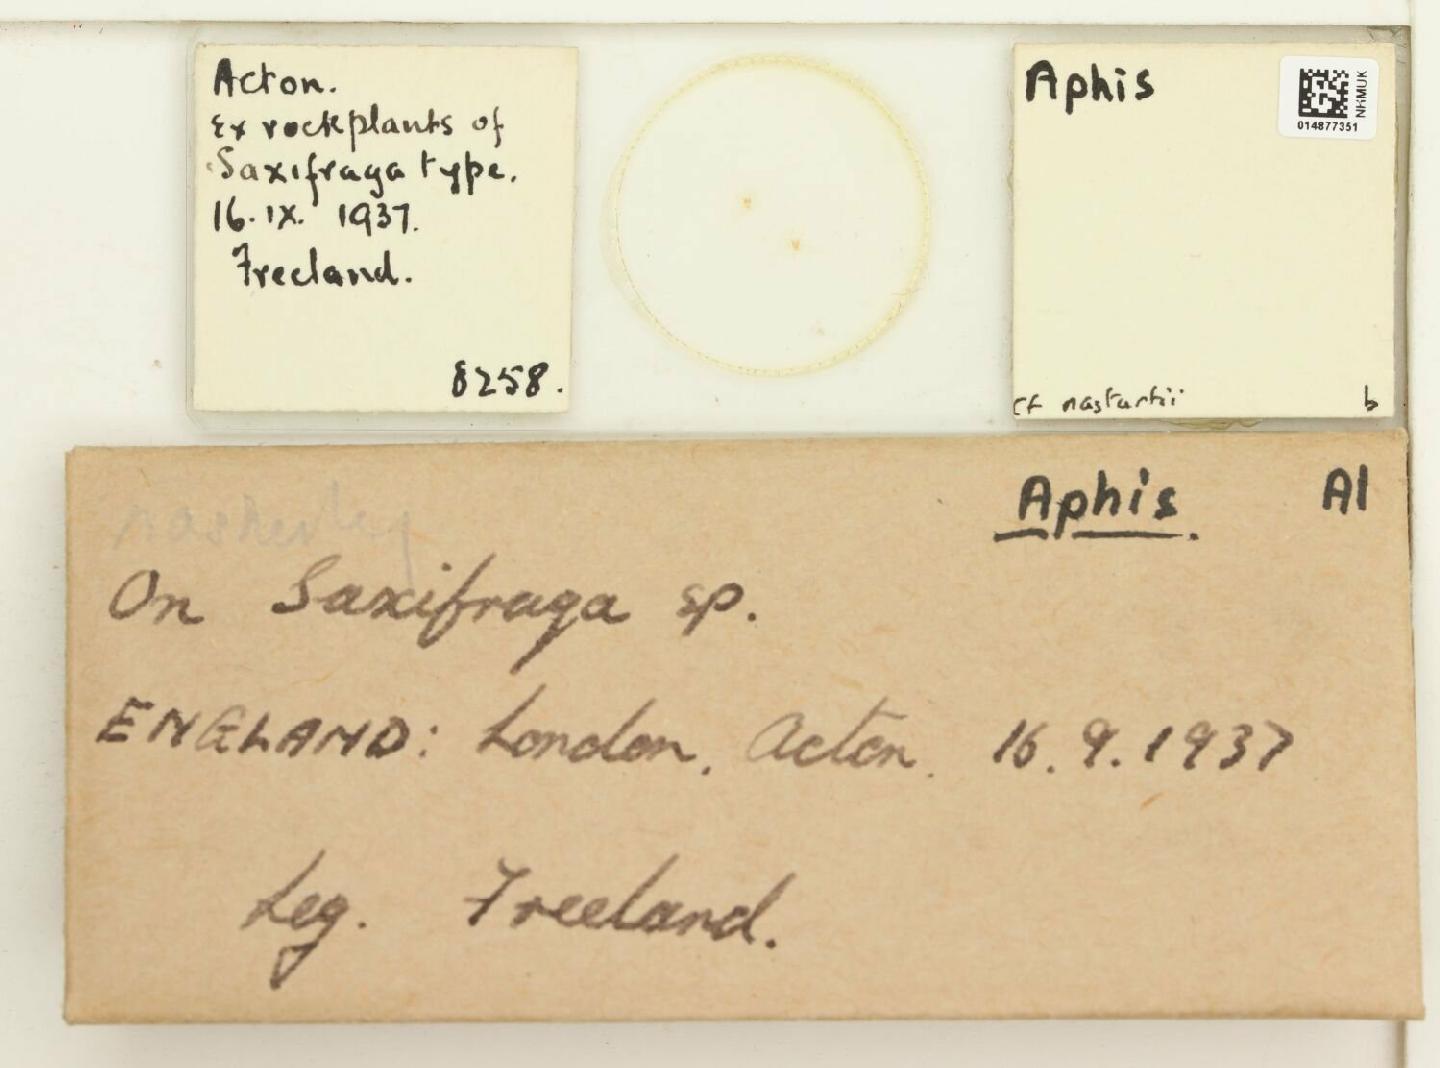 Acton.
Ex rockplants of
Saxifraga type.
16. IX. 1937.
Freeland.
8258.
Aphis
NHMUK
014877351
cf nasturtii
b
Aphis.
A1
On Saxifraga sp.
ENGLAND: London, Acton. 16.9.1937
Leg. Freeland.